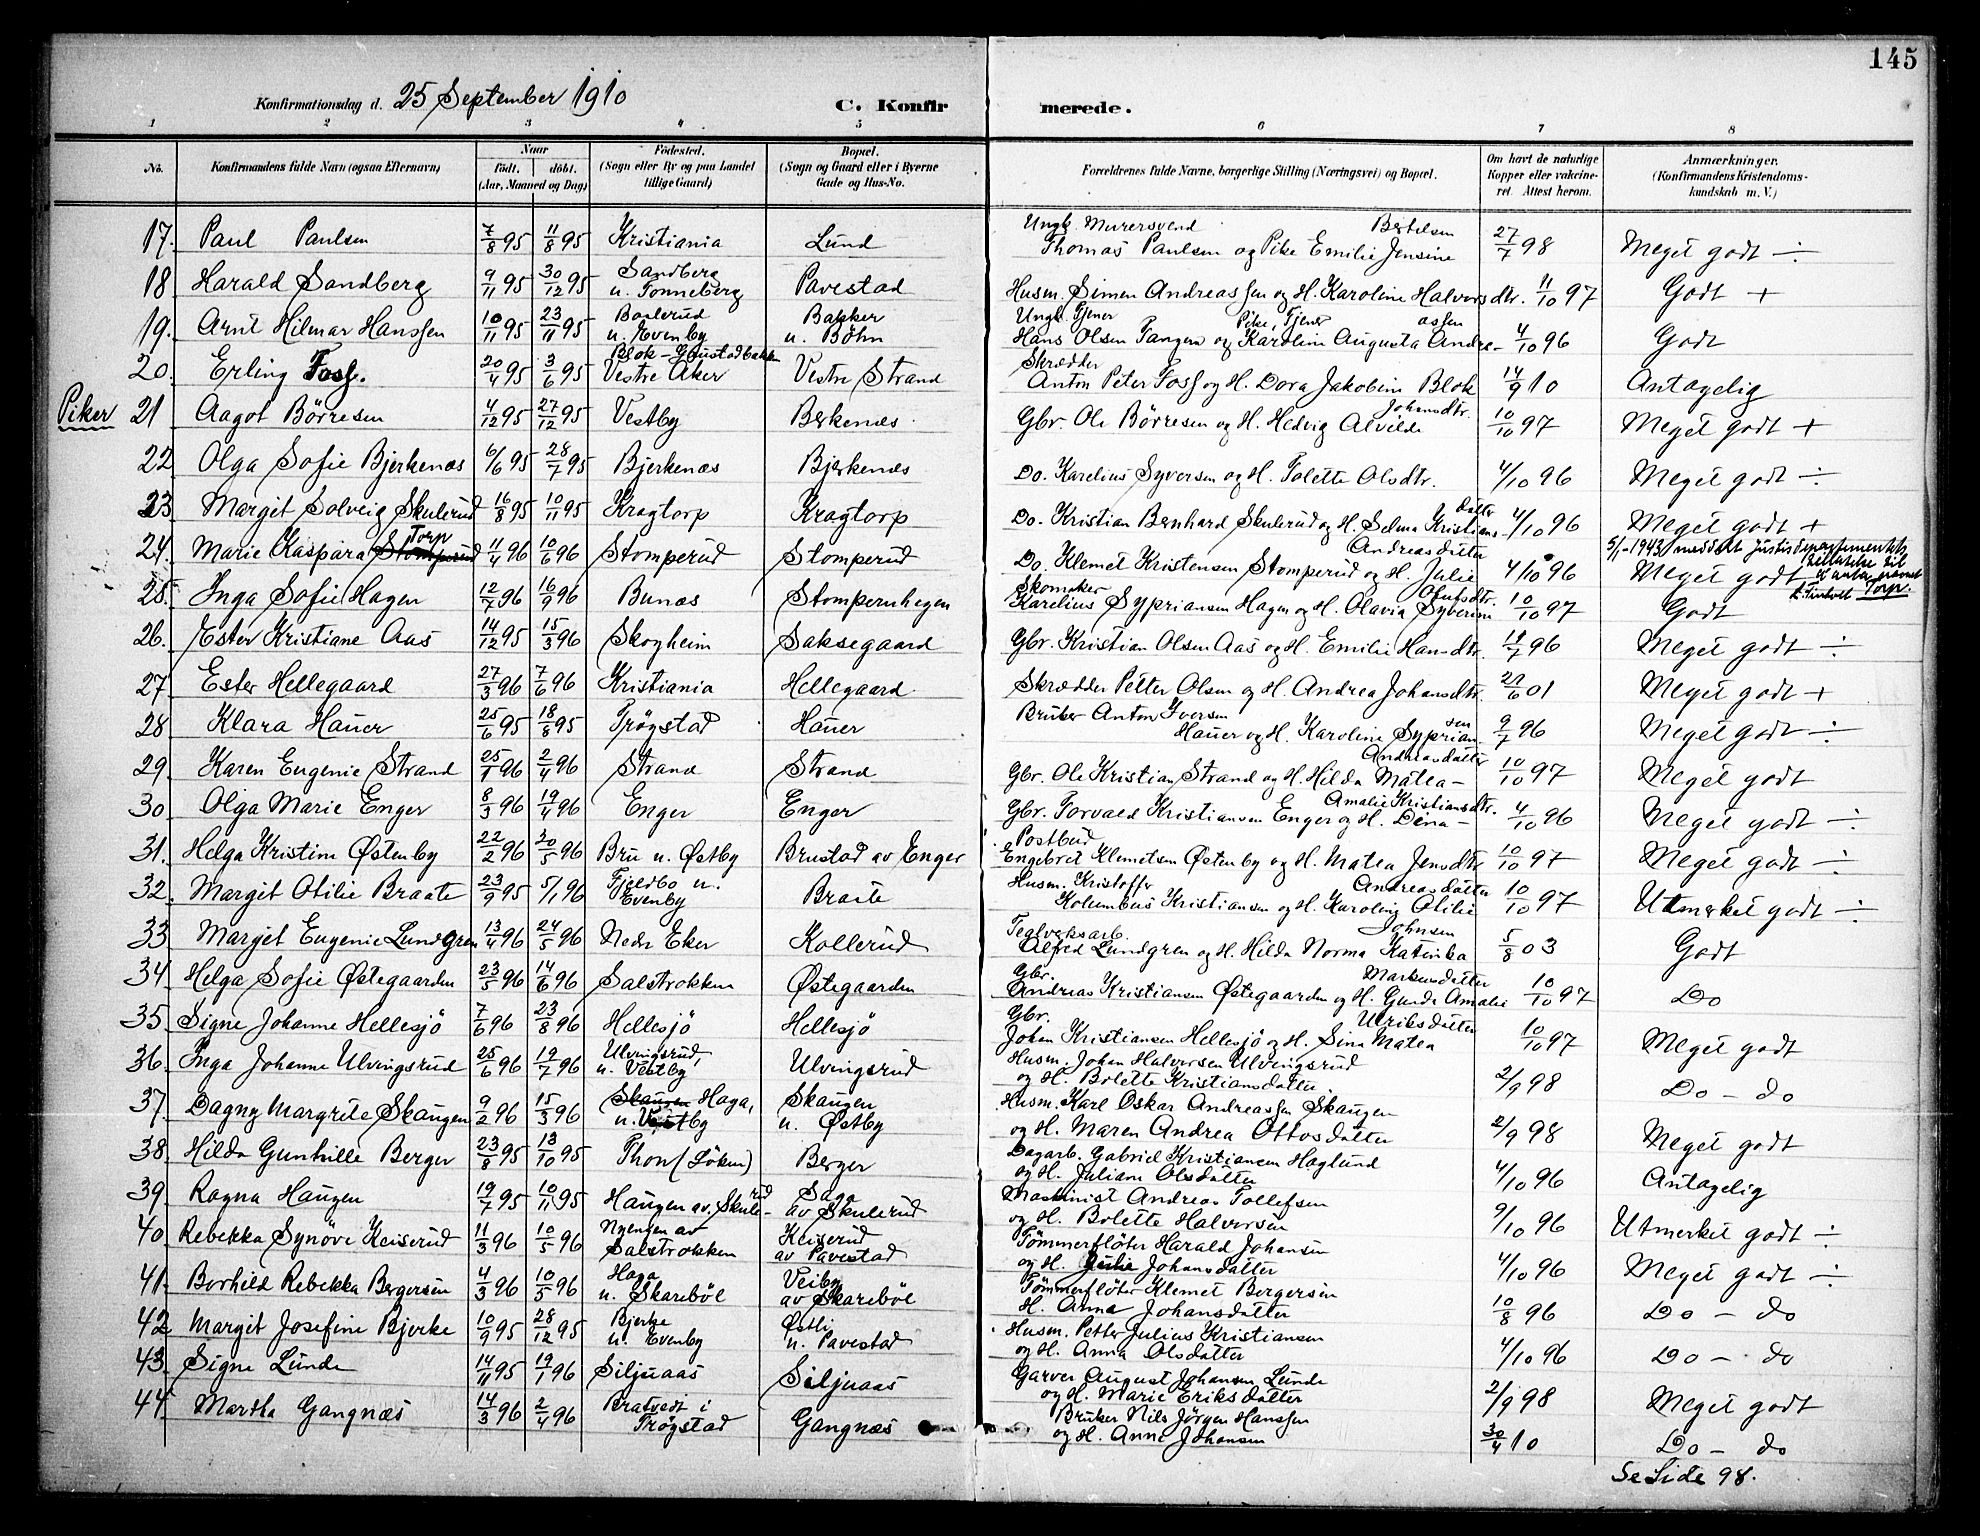 145
Konfirmationsdag d. 25 September 1910 C. Konfir merede.
1 2 3 4 5 6 7 8
No. Konfirmandens fulde Navn (ogsaa Efternavn) Naar födt. döbt. (Aar, Maaned og Dag) Födested. (Sogn eller By og paa Landet tillige Gaard) Bopæl. (Sogn og Gaard eller i Byerne Gade og Hus-No. Forældrenes fulde Navne, borgerlige Stilling (Næringsvei) og Bopæl. Om havt de naturlige Kopper eller vaccineret. Attest herom. Anmærkninger. (Konfirmandens Kristendomskundskab m. V.)
17. Paul Paulsen 7/8 95 11/8 95 Kristiania Lund Ungk. Murersvend Thomas Paulsen og Pike Emilie Jensine Bertelsen 27/7 98 Meget godt ÷
18 Harald Sandberg 9/11 95 30/12 95 Sandberg u. Tonneberg Pavestad Husm. Simen Andreassen og H. Karoline Halvorsdtr. 11/10 97 Godt +
19. Arnt Hilmar Hanssen 10/11 95 23/11 95 Baslerud u. Evenby Bakker u. Böhn Ungk. Tjener Hans Olsen Tangen og Pike, Tjener Karoline Augusta Andreassen 4/10 96 Godt
20. Erling Foss. 20/4 95 3/6 95 Blok-Gaustadbakken Vestre Aker Vestre Strand Skrædder Anton Peter Foss og H. Dora Jakobine Blok 14/9 10 Antagelig
Piker 21 Aagot Börresen 4/12 95 27/12 95 Vestby Berkenæs Gbr. Ole Börresen og H. Hedvig Alvilde Johansdtr. 10/10 97 Meget godt +
22 Olga Sofie Bjerkenæs 6/6 95 28/7 95 Bjerkenæs Bjerkenæs Do. Karelius Syversen og H. Tolette Olsdtr. 4/10 96 Meget godt ÷
23 Margit Solveig Skulerud 16/8 95 10/11 95 Kragtorp Kragtorp Do. Kristian Bernhard Skulerud og H. Selma Kristiansdatter 4/10 96 Meget godt +
24. Marie Kaspara Stomperud Torp 11/4 96 10/6 96 Stomperud Stomperud Do. Klemet Kristensen Stomperud og H. Julie Andreasdatter 4/10 96 Meget godt 5/1-1943 meddelt Justisdepartementets tillatelse til
25. Inga Sofie Hagen 12/7 96 16/9 96 Bunæs Stompernhegen Skomaker Karelius Sypriansen Hagen og H. Olavia Syverine Olufsdtr. 10/10 97 Godt Torp.
26. Ester Kristiane Aas 14/12 95 15/3 96 Skogheim Saksegaard Gbr. Kristian Olsen Aas og H. Emilie Hansdtr. 11/7 96 Meget godt ÷
27 Ester Hellegaard 27/3 96 7/6 96 Kristiania Hellegaard Skrædder Petter Olsen og H. Andrea Johansdtr. 21/6 01 Meget godt +
28 Klara Hauer 25/6 95 18/8 95 Trögstad Hauer Bruker Anton Iversen Hauer og H. Karoline Sypriansen 9/7 96 Meget godt ÷
29. Karen Eugenie Strand 25/1 96 2/4 96 Strand Strand Gbr. Ole Kristian Strand og H. Hilda Matea Andreasdatter 10/10 97 Meget godt
30 Olga Marie Enger 8/3 96 19/4 96 Enger Enger Gbr. Torvald Kristiansen Enger og H. Dina Amalie Kristiansdtr. 4/10 96 Meget godt ÷
31. Helga Kristine Østenby 22/2 96 20/5 96 Bru u. Østby Brustad av Enger Postbud Engebret Klemetsen Østenby og H. Matea Jensdtr 10/10 97 Meget godt ÷
32. Margit Otilie Braate 23/9 95 5/1 96 Fjeldbo u. Evenby Braate Husm. Kristoffer Kolumbus Kristiansen og H. Karoline Otilie Andreasdatter 10/10 97 Utmerket godt ÷
33 Margit Eugenie Lundgren 13/4 96 24/5 96 Nedre Eker Kollerud Teglverksarb. Alfred Lundgren og H. Hilda Norma Katinka Johnsen 5/8 03 Godt
34 Helga Sofie Østegaarden 23/5 96 14/6 96 Salstrokken Østegaarden Gbr. Andreas Kristiansen Østegaarden og H. Gunda Amalie Markusdatter 10/10 97 Do
35 Signe Johanne Hellesjö 7/6 96 23/8 96 Hellesjö Hellesjö Gbr. Johan Kristiansen Hellesjö og H. Sina Matea Ulriksdatter 10/10 97 Meget godt
36 Inga Johanne Ulvingsrud 25/6 96 19/7 96 Ulvingsrud, u. Vestby Ulvingsrud Husm. Johan Halvorsen Ulvingsrud og H. Bolette Kristiansdatter 2/9 98 Do - do
37 Dagny Margrete Skaugen 9/2 96 15/3 96 Skaugen Haga, u. Vestby Skaugen u. Østby Husm. Karl Oskar Andreassen Skaugen og H. Maren Andrea Ottosdatter 2/9 98 Meget godt
38. Hilda Gunhille Berger 23/8 95 13/10 95 Thon (Löken) Berger Dagarb. Gabriel Kristiansen Haglund og H. Juliane Olsdatter 4/10 96 Antagelig
39 Ragna Haugen 19/7 95 10/11 95 Haugen av. Skulerud Saga av Skulerud Maskinist Andreas Tollefsen og H. Bolette Halvorsen 9/10 96 Utmerket godt ÷
40 Rebekka Synöve Keiserud 11/3 96 10/5 96 Nyengen av Salstrokken Keiserud av Pavestad Tömmerflöter Harald Johansen og H. Julie Johansdatter 4/10 96 Meget godt ÷
41. Borhild Rebekka Bergersen 4/3 96 10/5 96 Haga u. Skareböl Veiby av Skareböl Tömmerflöter Klemet Bergersen H. Anna Johansdatter 10/8 96 Do - do
42 Margit Josefine Bjerke 10/9 95 28/12 95 Bjerke u. Evenby Østli u. Pavestad Husm. Petter Julius Kristiansen og H. Anna Olsdatter 4/10 96 Do - do
43. Signe Lunde 14/11 95 19/1 96 Siljuaas Siljuaas Garver August Johansen Lunde og H. Marie Eriksdatter 2/9 98 Meget godt
44 Martha Gangnæs 14/3 96 2/4 96 Bratvedt i Trögstad Gangnæs Bruker Nils Jörgen Hanssen og H. Anne Johansen 30/4 10 Do - do
Se Side 98.